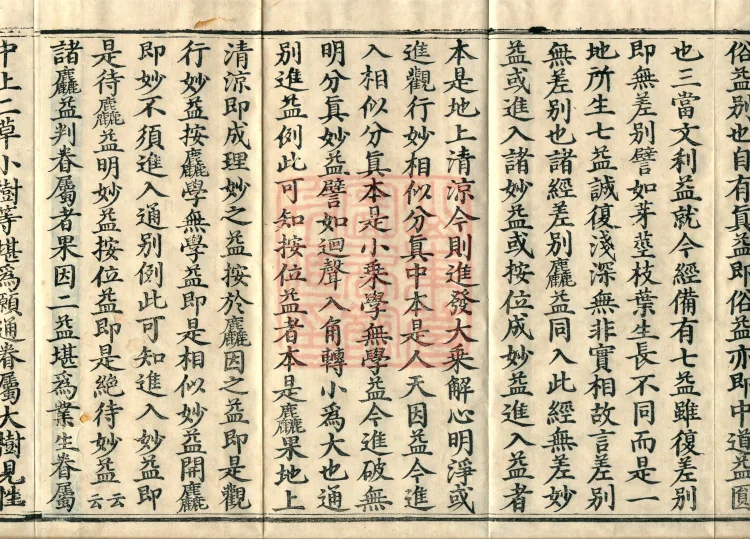 俗益別也自有真益即俗益亦即中道益圓
也三當文利益就今經備有七益雖復差別
即無差別譬如芽莖枝葉生長不同而是一
地所生七益誠復淺深無非實相故言差別
無差別也諸經差別麤益同入此經無差妙
益或進入諸妙益或按位成妙益進入益者
本是地上清涼今則進發大乘解心明淨或
進觀行妙相似分真中本是人天因益今進
入相似分真本是小乘學無學益今進破無
明分真妙益譬如迴聲入角轉小為大也通
別進益例此可知按位益者本是麤果地上
清涼即成理妙之益按於麤因之益即是觀
行妙益按麤學無學益即是相似妙益開麤
即妙不須進入通別例此可知進入妙益即
是待麤益明妙益按位益即是絕待妙益云云
諸麤益判眷屬者果因二益堪為業生眷屬
中上二草小樹等堪為願通眷屬大樹見性